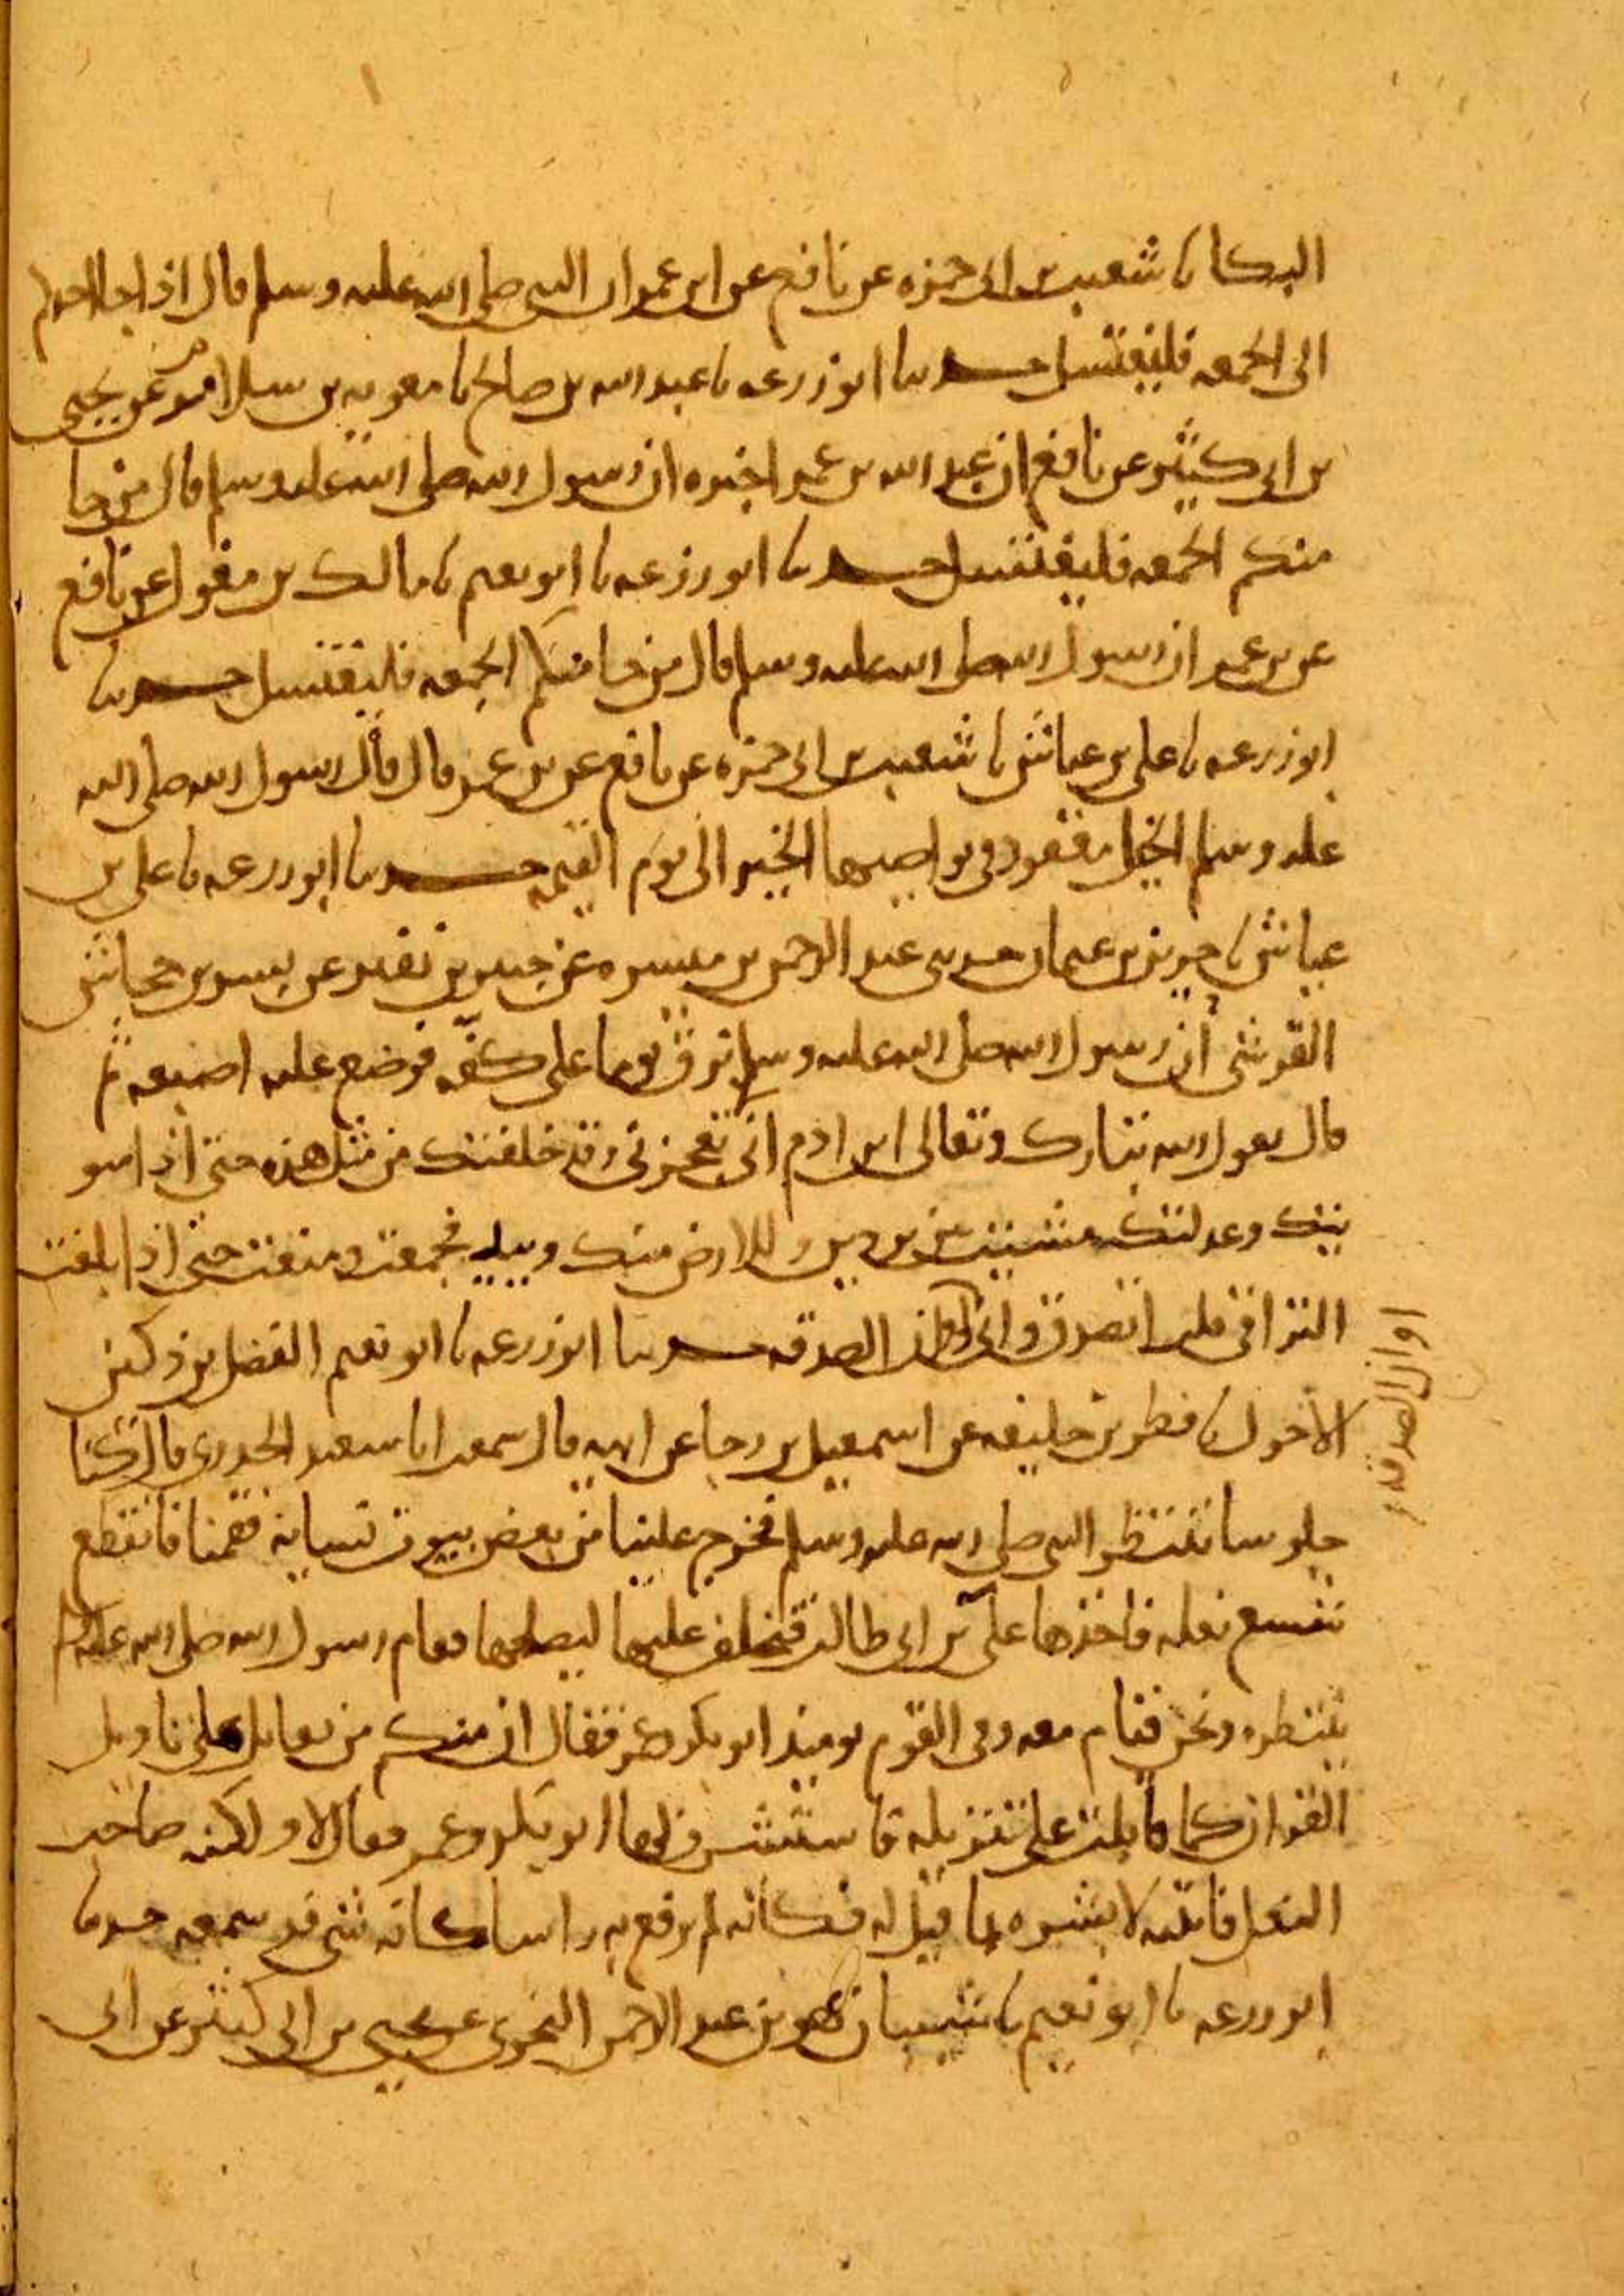 البكا نا شعيب بن ابي حمزه عن نافع عن ابن عمر ان النبي صلى الله عليه وسلم قال اذا جا احدكم
الى الجمعه فليغتسل حدثنا ابو زرعه نا عبد الله بن صالح نا معويه بن سلام عن يحيى
بن ابي كثير عن نافع ان عبد الله بن عمر اخبره ان رسول الله صلى الله عليه وسلم قال من جا
منكم الجمعه فليغتسل حدثنا ابو زرعه نا ابو نعيم نا مالك بن مغول عن نافع
عن بن عمر ان رسول الله صلى الله عليه وسلم قال من جا منكم الجمعه فليغتسل حدثنا
ابو زرعه نا علي بن عياش نا شعيب بن ابي حمزه عن نافع عن بن عمر قال قال رسول الله صلى الله
عليه وسلم الخيل معقود في نواصيها الخير الى يوم القيمه حدثنا ابو زرعه نا علي بن
عياش نا حريز بن عثمان حدثني عبد الرحمن بن ميسره عن جبير بن نفير عن بسر بن جحاش
القرشي ان رسول الله صلى الله عليه وسلم بزق يوما على كفه فوضع عليه اصبعه ثم
قال يقول الله تبارك وتعالى ابن ادم انى تعجزني وقد خلقتك من مثل هذه حتى اذا سو
يتك وعدلتك مشيت بين بردين وللارض منك وييد فجمعت ومنعت حتى اذا بلغت
التراقي قلت اتصدق وانى اوان الصدقه حدثنا ابو زرعه نا ابو نعيم الفضل بن دكين
الاحول نا فطر بن خليفه عن اسمعيل بن رجا عن ابيه قال سمعت ابا سعيد الخدري قال كنا
جلوسا ننتظر النبي صلى الله عليه وسلم فخرج علينا من بعض بيوت نسايه فقمنا فانقطع
شسع نعله فاخذها علي بن ابي طالب فتخلف عليها ليصلحها فقام رسول الله صلى الله عليه وسلم
ينتظره ونحن قيام معه وفي القوم يوميذ ابو بكر وعمر فقال ان منكم من يقاتل على تاويل
القران كما قاتلت على تنزيله فاستشرف لها ابو بكر وعمر فقال لا ولكنه صاحب
النعل فاتيته لابشره بما قيل له فكانه لم يرفع به راسا كانه شي قد سمعه حدثنا
ابو زرعه نا ابو نعيم نا شيبان هو بن عبد الرحمن النحوي عن يحيى بن ابي كثير عن ابي
اوان الصدقه